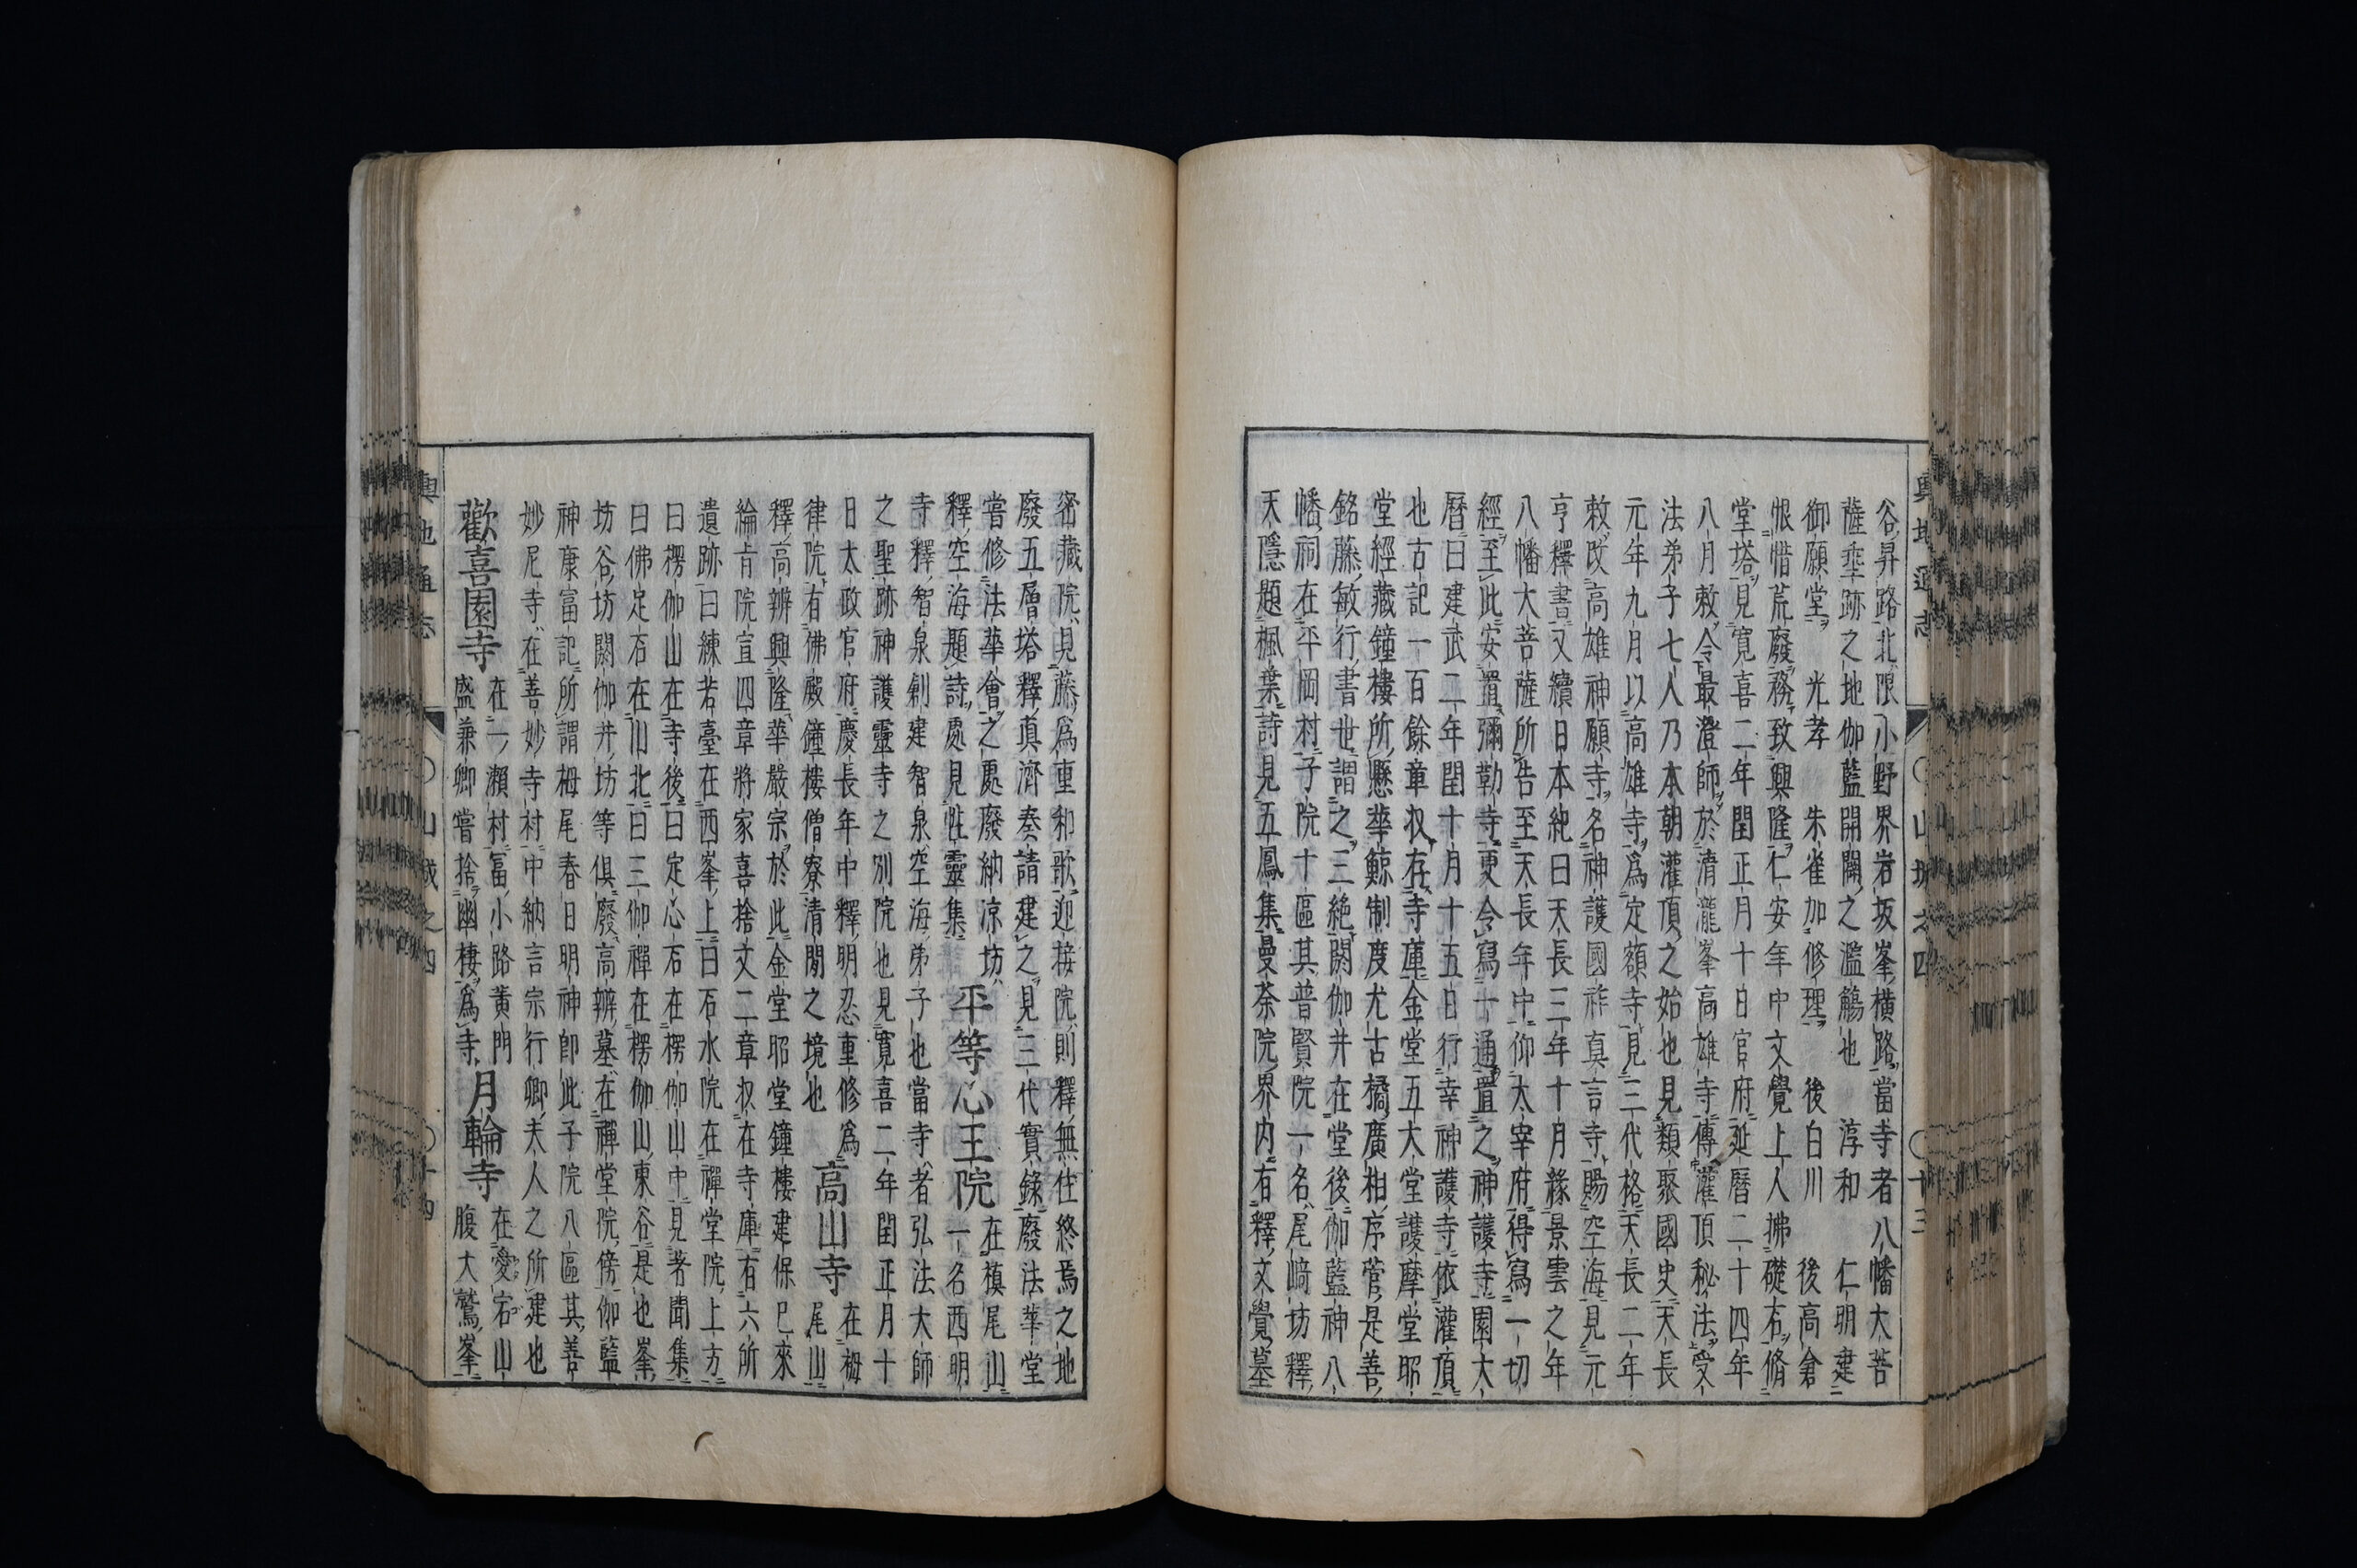 谷昇路北限小野界岩坂峯橫路當寺者八幡大菩
薩垂跡之地伽藍開闢之濫觴也 淳和 仁明建
御願堂 光孝 朱雀加修理 後白川 後高倉
恨惜荒廢務致興隆仁安年中文覺上人拂礎石脩
堂塔見寬喜二年閏正月十日官府延曆二十四年
八月敕令最澄師於清瀧峯高雄寺傳灌頂秘法受
法弟子七人乃本朝灌頂之始也見類聚國史天長
元年九月以高雄寺爲定額寺見三代格天長二年
敕改高雄神願寺名神護國祚真言寺賜空海見元
亨釋書又續日本紀曰天長三年十月緣景雲之年
八幡大菩薩所告至天長年中仰太宰府得寫一切
經至此安置彌勒寺更令寫一通置之神護寺園大
曆曰建武二年閏十月十五日行幸神護寺依灌頂
也古記一百餘章収存寺庫金堂五大堂護摩堂昭
堂經藏鐘樓所懸華鯨制度尤古橘廣相序菅是善
銘藤敏行書世謂之三絕閼伽井在堂後伽藍神八
幡祠在平岡村子院十區其普賢院一名尾崎坊釋
天隱題楓葉詩見五鳳集曼荼院界内有釋文覺墓
輿地通志 〇山城之四 〇十三
密藏院見藤爲重和歌迎接院則釋無住終焉之地
廢五層塔釋真濟奏請建之見三代實錄廢法華堂
嘗修法華會之處廢納凉坊 平等心王院 在槙尾山
釋空海題詩處見性靈集 一名西明
寺釋智泉創建智泉空海弟子也當寺者弘法大師
之聖跡神護靈寺之別院也見寬喜二年閏正月十
日太政官府慶長年中釋明忍重修爲 高山寺 在栂
律院有佛殿鐘樓僧寮清閒之境也 尾山
釋高辨興隆華嚴宗於此金堂昭堂鐘樓建保已來
綸旨院宣四章將家喜捨文二章収在寺庫有六所
遺跡曰練若臺在西峯上曰石水院在禪堂院上方
曰楞伽山在寺後曰定心石在楞伽山中見著聞集
曰佛足石在川北曰三伽禪在楞伽山東谷是也峯
坊谷坊閼伽井坊等俱廢高辨墓在禪堂院傍伽藍
神康富記所謂栂尾春日明神卽此子院八區其善
妙尼寺在善妙寺村中納言宗行卿夫人之所建也
歡喜園寺 在一瀨村冨小路黃門 月輪寺 在愛宕山
盛兼卿嘗捨幽棲爲寺 腹大鷲峯
輿地通志 〇山城之四 〇十四